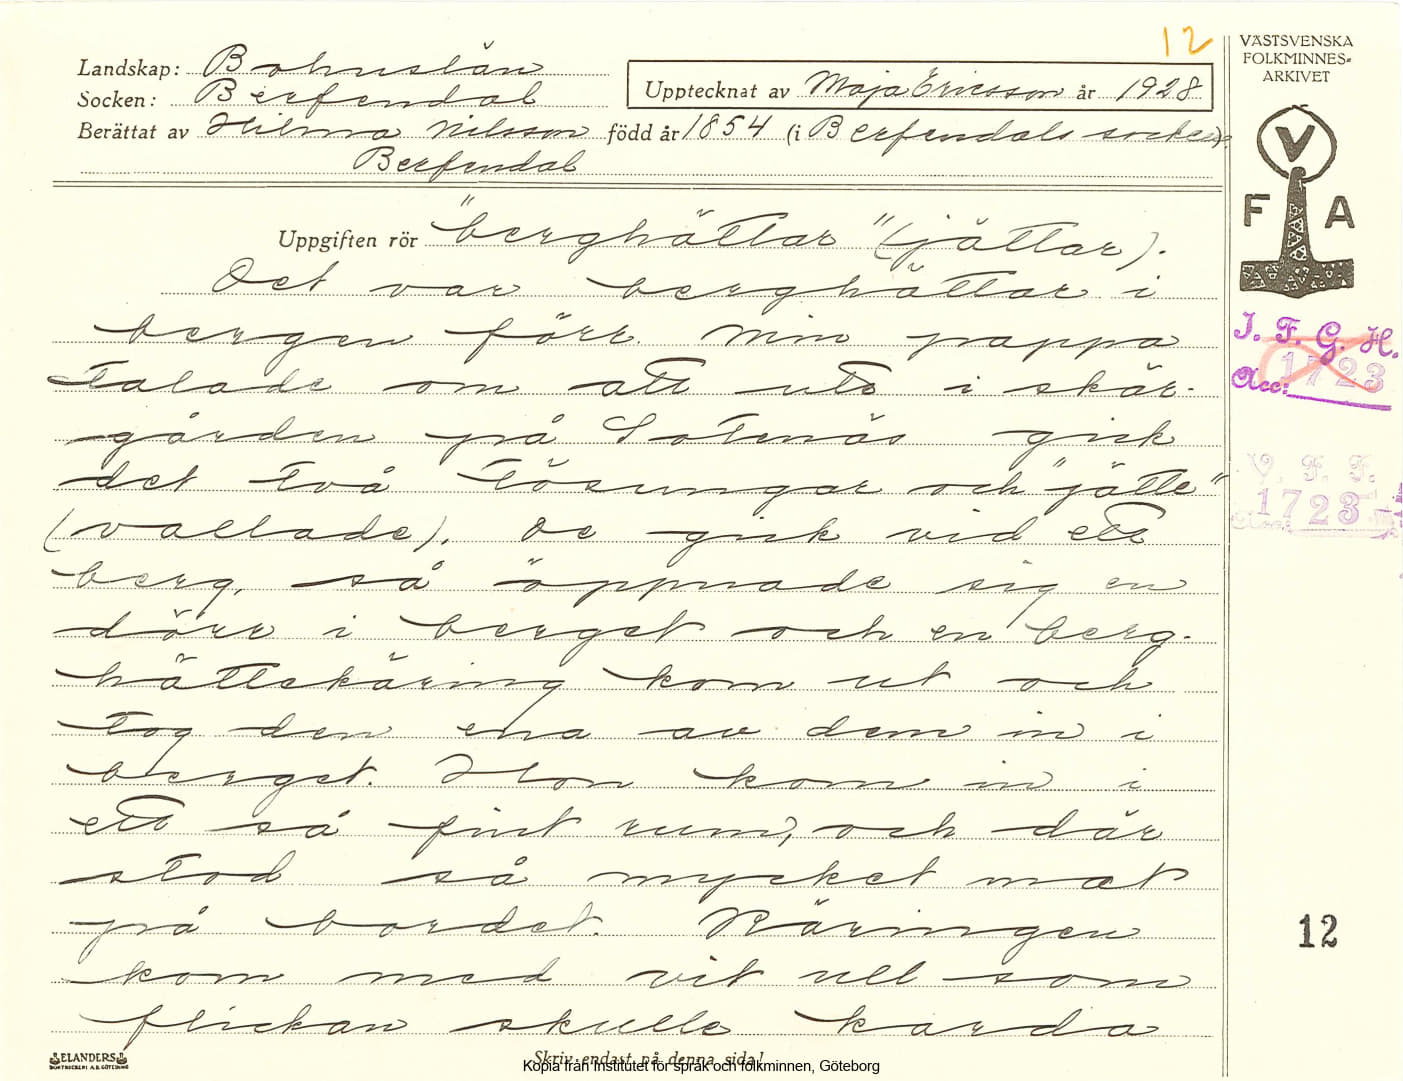 12
VÄSTSVENSKA
FOLKMINNES-
ARKIVET
Landskap: Bohuslän
Socken: Bärfendal
Upptecknat av Maja Ericsson år 1928
Berättat av Hilma Nilsson född år 1854 (i Berfendals socken)
Berfendal
V
F A
Uppgiften rör "berghättar" (jättar).
Det var berghättar i
bergen förr. Min pappa
talade om att ute i skär-
gården på Sotenäs gick
det två tösungar och "jätte"
(vallade). De gick vid ett
berg, så öppnade sig en
dörr i berget och en berg-
hättekäring kom ut och
tog den ena av dem in i
berget. Hon kom in i
ett så fint rum, och där
stod så mycket mat
på bordet. Käringen
kom med vit ull som
flickan skulle karda
I. F. G. H.
Acc: 1723
V. F. F.
Acc: 1723
12
ELANDERS
BOKTRYCKERI A.B. GÖTEBORG
Skriv endast på denna sida!
Kopia från Institutet för språk och folkminnen, Göteborg